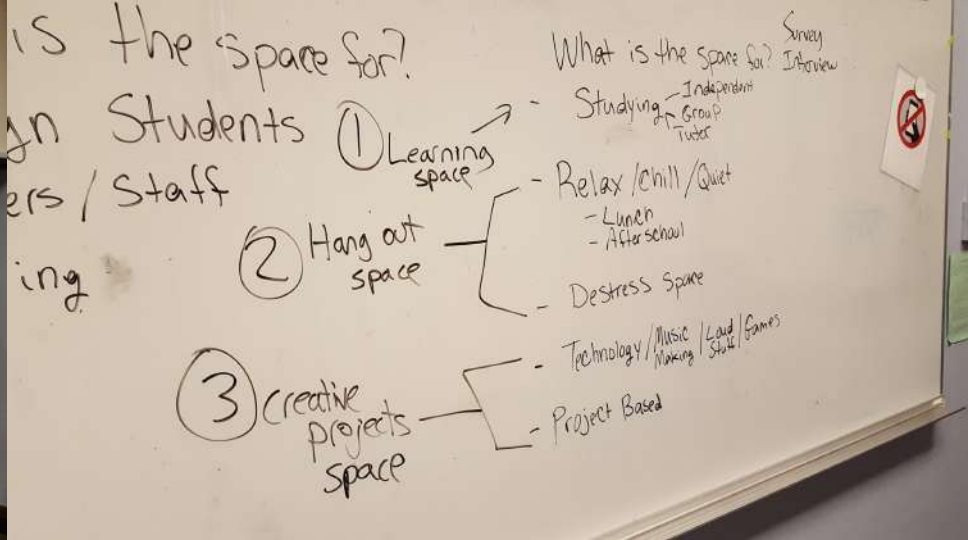 is the space for?
gn Students
ers / Staff
ing
① Learning
space
② Hang out
space
③ Creative
projects
space
What is the space for?
Survey
Interview
- Studying
- Independent
- Group
Tutor
- Relax / Chill / Quiet
- Lunch
- After school
- Destress Space
- Technology / Music Making / Loud Stuff / Games
- Project Based